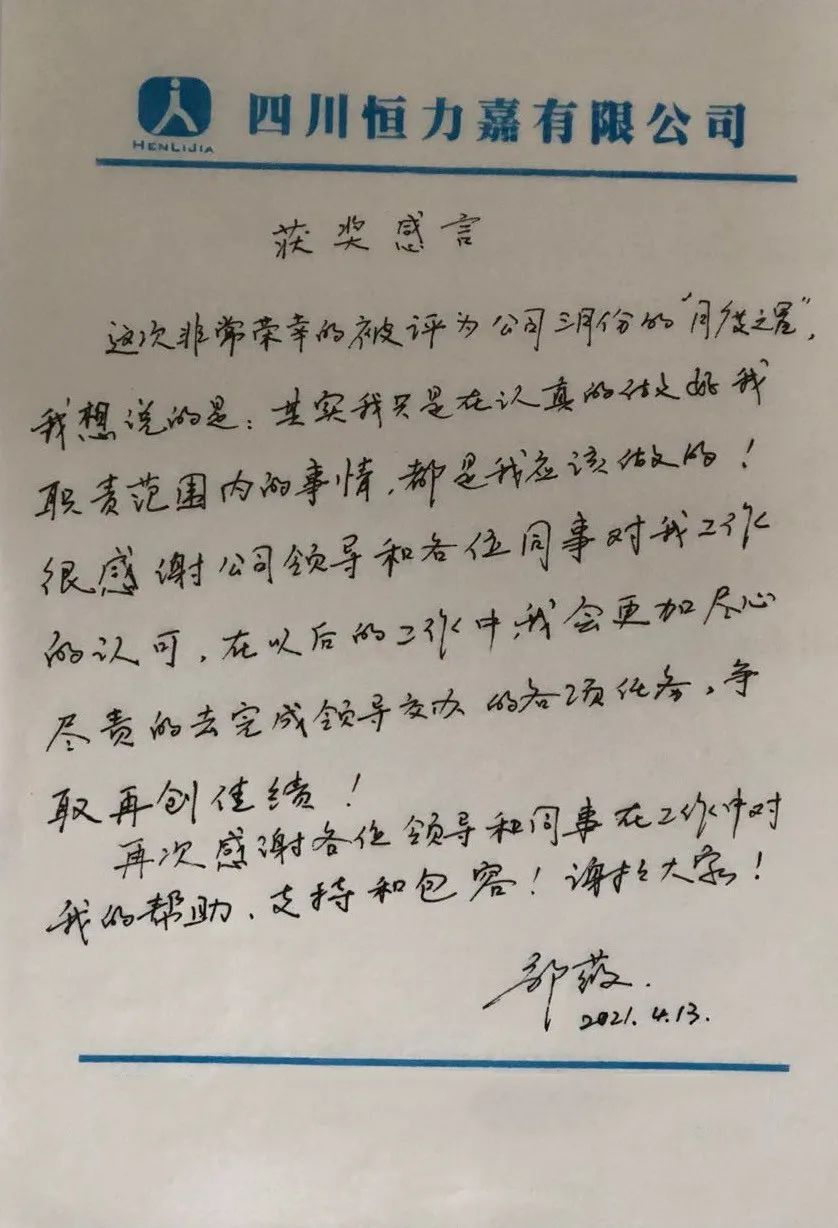 HENLIJIA
四川恒力嘉有限公司
获奖感言
这次非常荣幸的被评为公司三月份的“月度之星”，
我想说的是：其实我只是在认真的做好我
职责范围内的事情，都是我应该做的！
很感谢公司领导和各位同事对我工作
的认可，在以后的工作中，我会更加尽心
尽责的去完成领导交办的各项任务，争
取再创佳绩！
再次感谢各位领导和同事在工作中对
我的帮助、支持和包容！谢谢大家！
2021.4.13.